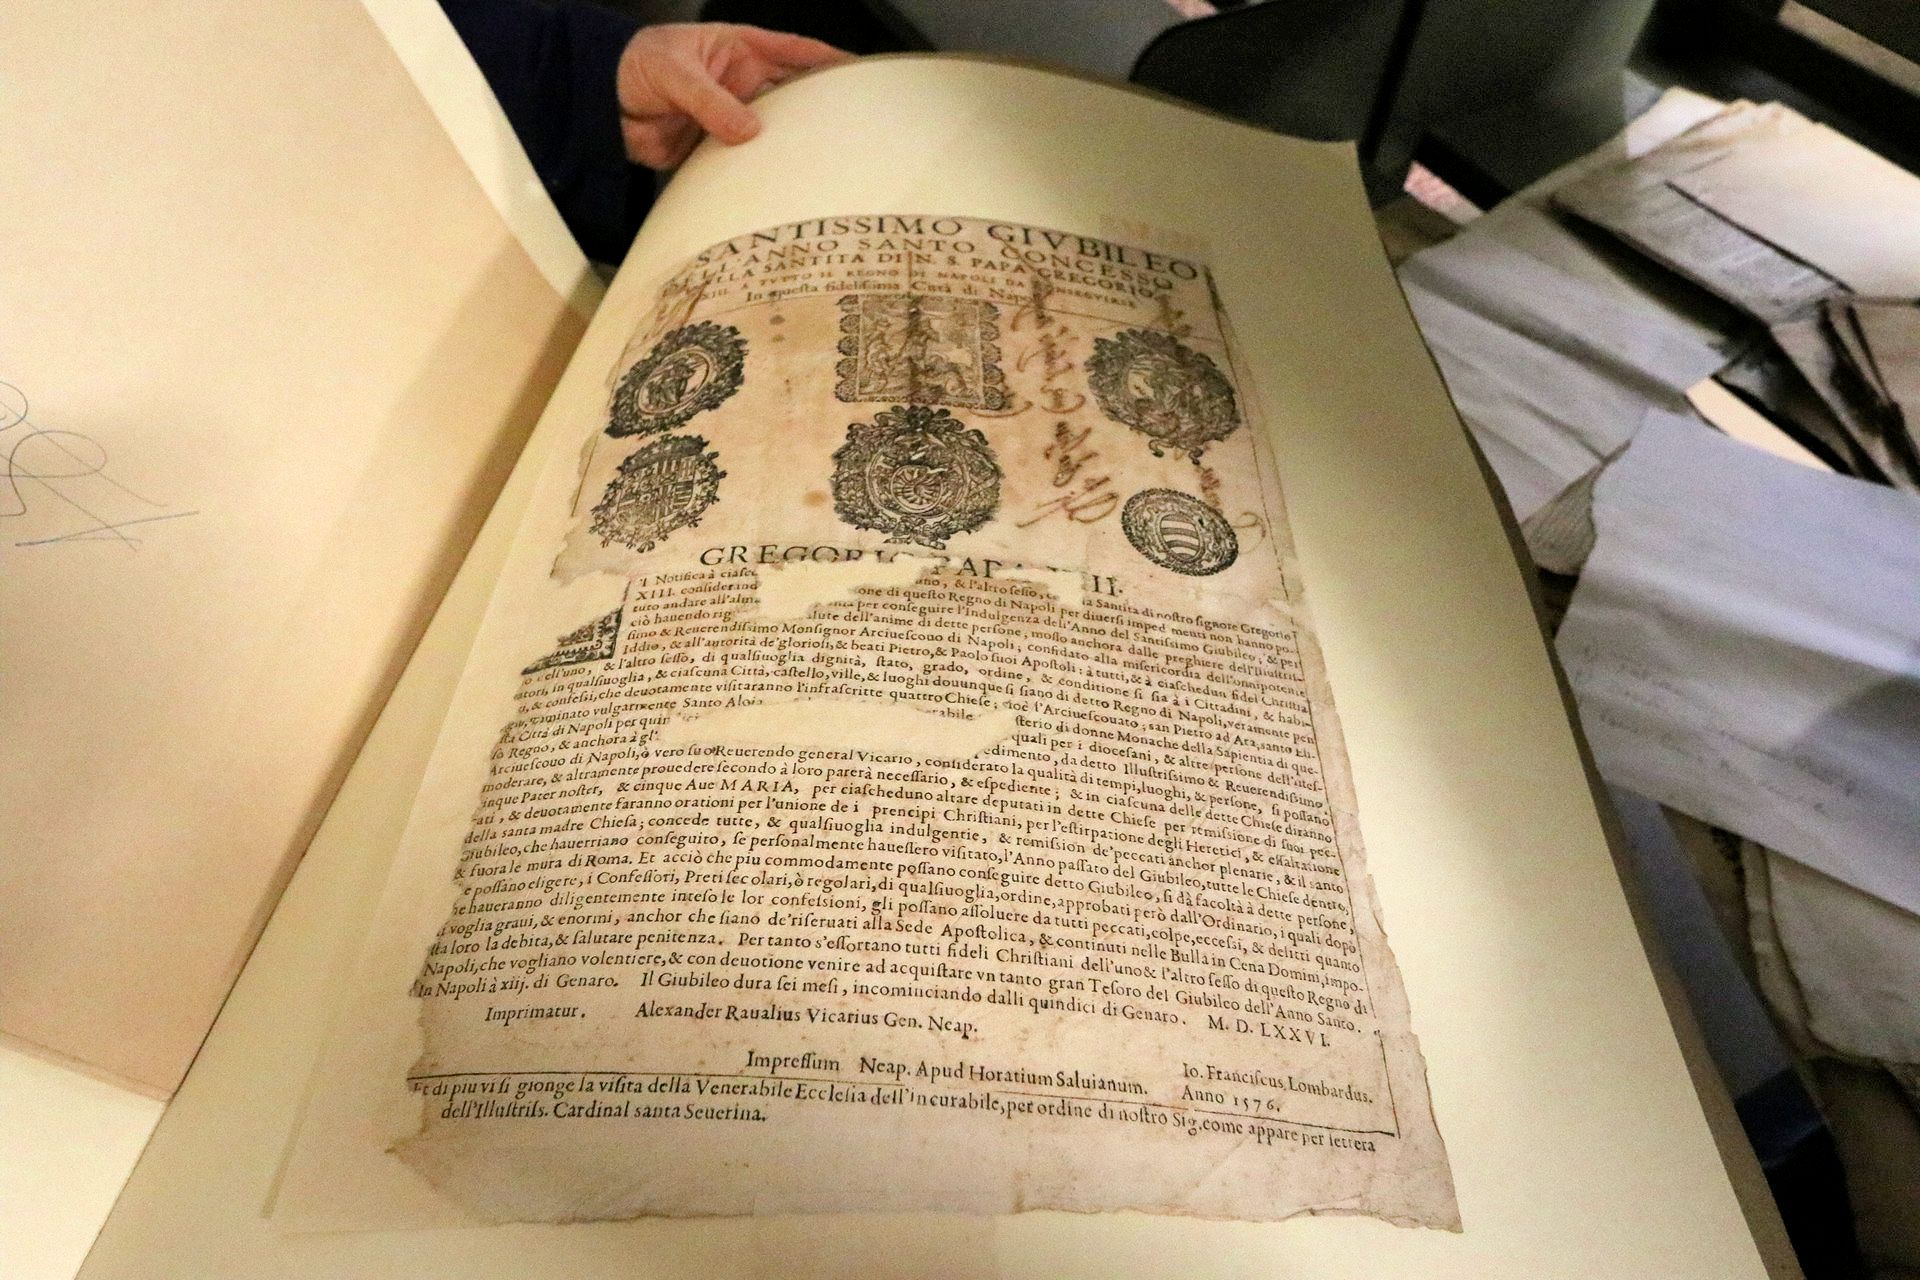 SANTISSIMO GIVBILEO
DELL'ANNO SANTO, CONCESSO
DALLA SANTITA DI N. S. PAPA GREGORIO
XIII. A TVTTO IL REGNO DI NAPOLI DA CONSEGVIRSE
In questa fidelissima Città di Nap
GREGORIO PAPA XIII.
SI Notifica à ciasc uno, & l'altro sesso, la Santità di nostro signore Gregorio
XIII. considerand one di questo Regno di Napoli per diuersi imped menti non hanno po-
tuto andare all'alm per conseguire l'Indulgenza dell'Anno del Santissimo Giubileo; & per
ciò hauendo rig salute dell'anime di dette persone, mosso anchora dalle preghiere dell'Illustris-
simo & Reuerendissimo Monsignor Arciuescouo di Napoli; confidato alla misericordia dell'onnipotente
Iddio, & all'autorità de'gloriosi, & beati Pietro, & Paolo suoi Apostoli: à tutti, & à ciaschedun fidel Christia
o dell'uno, & l'altro sesso, di qualsiuoglia dignità, stato, grado, ordine, & conditione si sia à i Cittadini, & habi-
tatori, in qualsiuoglia, & ciascuna Città, castello, ville, & luoghi douunque si siano di detto Regno di Napoli, veramente pen
ti, & confessi, che deuotamente visitaranno l'infrascritte quattro Chiese; cioè l'Arciuescouato; san Pietro ad Ara, santo Eli-
gio, nominato vulgarmente Santo Aloia rabile sterio di donne Monache della Sapientia di que-
sta Città di Napoli per quin quali per i diocesani, & altre persone dell'istes-
so Regno, & anchora à gl' edimento, da detto Illustrissimo & Reuerendissimo
Arciuescouo di Napoli, ò vero suo Reuerendo general Vicario, considerato la qualità di tempi, luoghi, & persone, si possano
moderare, & altramente prouedere secondo à loro parerà necessario, & espediente; & in ciascuna delle dette Chiese diranno
cinque Pater noster, & cinque Aue MARIA, per ciascheduno altare deputati in dette Chiese per remissione di suoi pec-
cati, & deuotamente faranno orationi per l'unione de i prencipi Christiani, per l'estirpatione degli Heretici, & essaltatione
della santa madre Chiesa; concede tutte, & qualsiuoglia indulgentie, & remission de'peccati anchor plenarie, & il santo
Giubileo, che hauerriano conseguito, se personalmente hauessero visitato, l'Anno passato del Giubileo, tutte le Chiese dentro,
& fuora le mura di Roma. Et acciò che piu commodamente possano conseguire detto Giubileo, si dà facoltà à dette persone,
e possano eligere, i Confessori, Preti secolari, ò regolari, di qualsiuoglia, ordine, approbati però dall'Ordinario, i quali dopò
he haueranno diligentemente inteso le lor confessioni, gli possano assoluere da tutti peccati, colpe, eccessi, & delitti quanto
si voglia graui, & enormi, anchor che siano de'riseruati alla Sede Apostolica, & continuti nelle Bulla in Cena Domini, impo-
sta loro la debita, & salutare penitenza. Per tanto s'essortano tutti fideli Christiani dell'uno & l'altro sesso di questo Regno di
Napoli, che vogliano volentiere, & con deuotione venire ad acquistare vn tanto gran Tesoro del Giubileo dell'Anno Santo.
In Napoli à xiij. di Genaro. Il Giubileo dura sei mesi, incominciando dalli quindici di Genaro. M. D. LXXVI.
Imprimatur. Alexander Raualius Vicarius Gen. Neap.
Io. Franciscus, Lombardus.
Impressum Neap. Apud Horatium Saluianum. Anno 1576.
Et di piu vi si gionge la visita della Venerabile Ecclesia dell'incurabile, per ordine di nostro Sig. come appare per lettera
dell'Illustriss. Cardinal santa Seuerina.